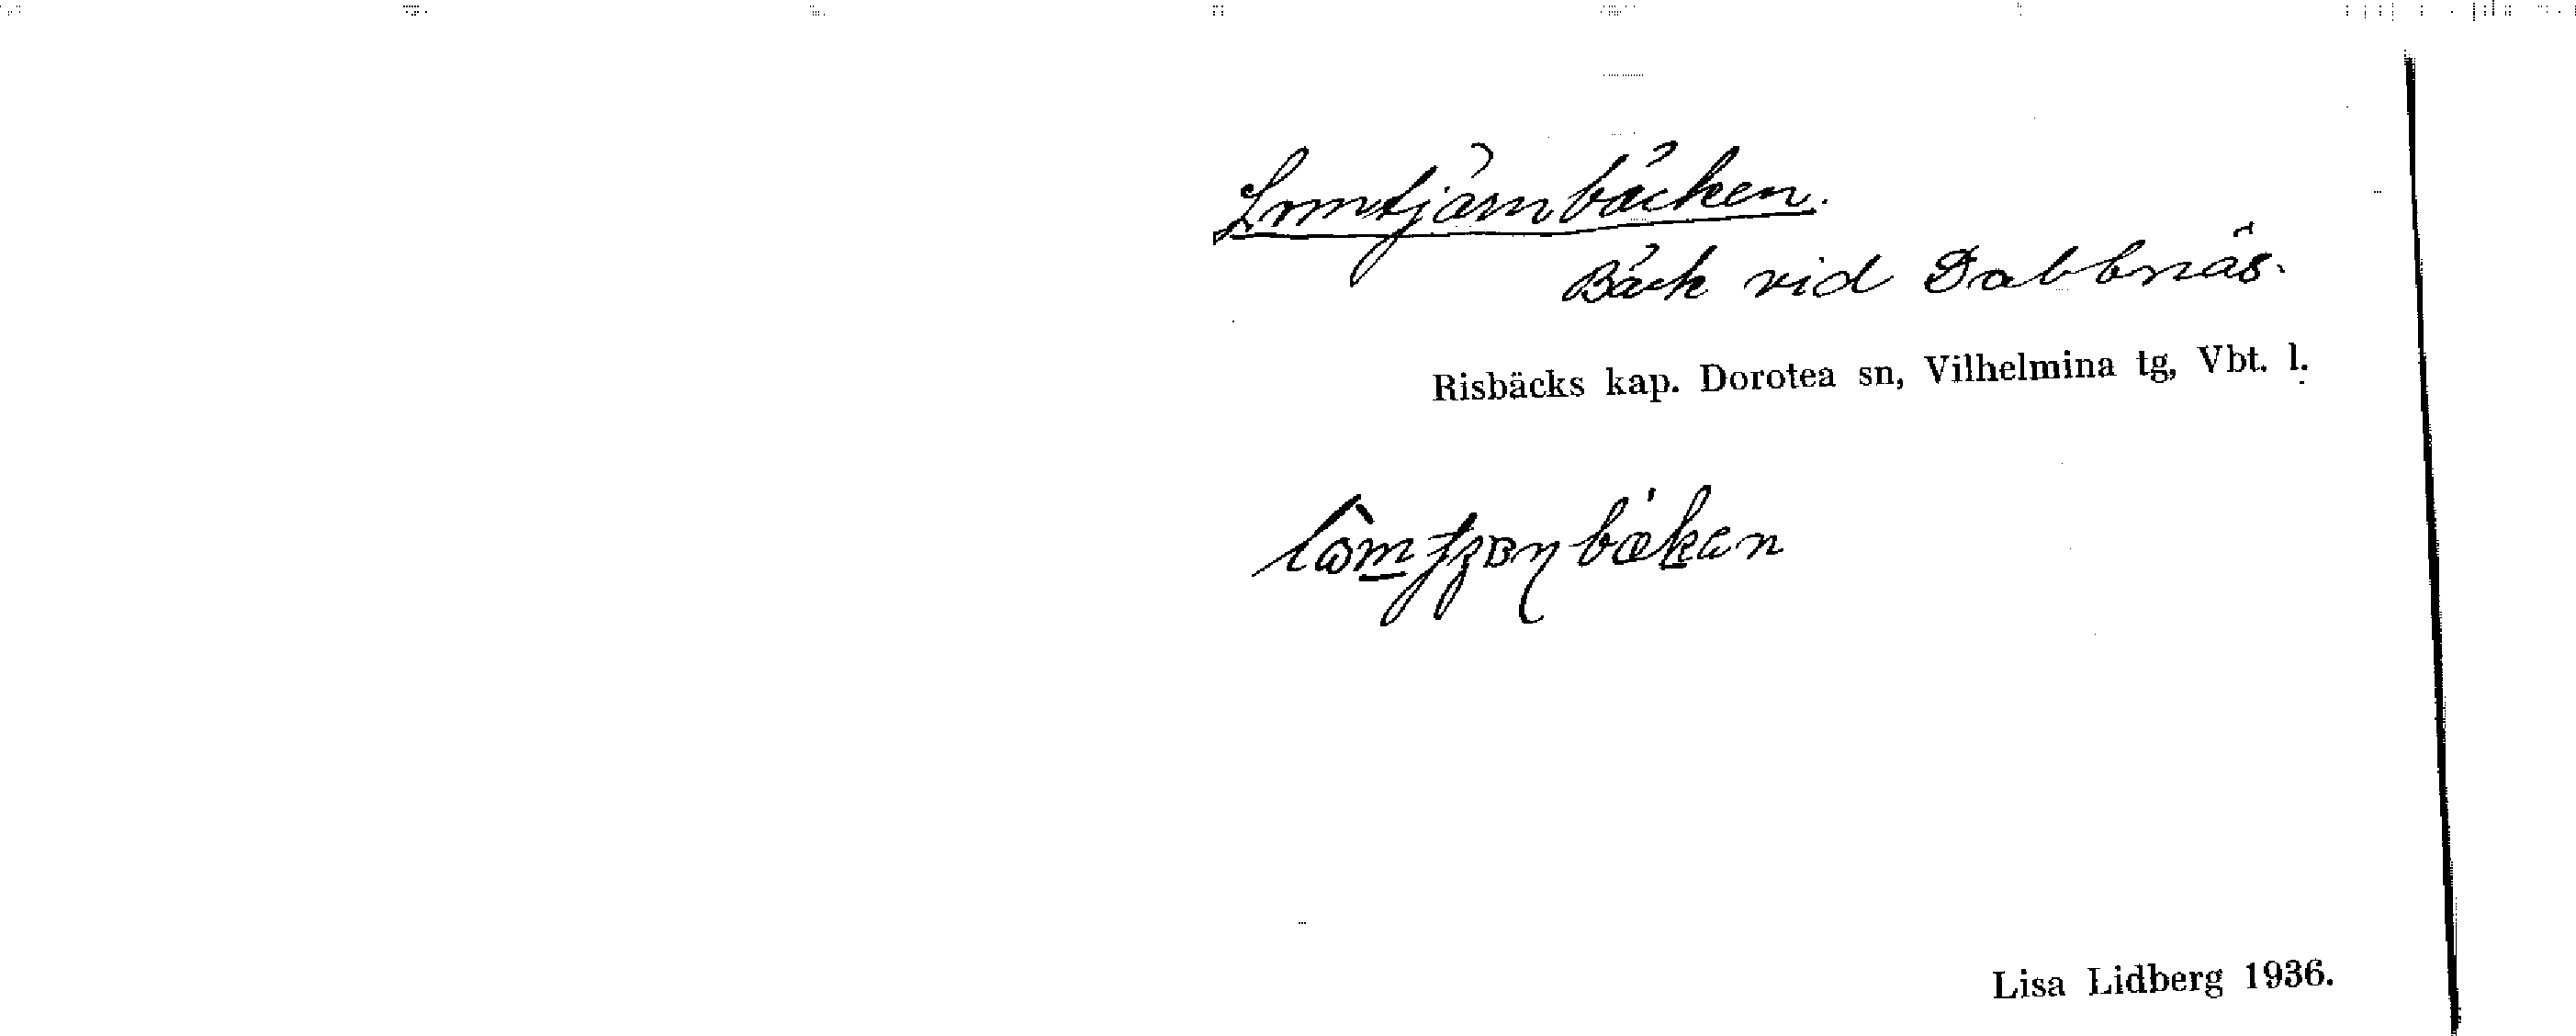 Lomtjärnbäcken.
Bäck vid Dabbnäs.
Risbäcks kap. Dorotea sn, Vilhelmina tg, Vbt. l.
Lisa Lidberg 1936.